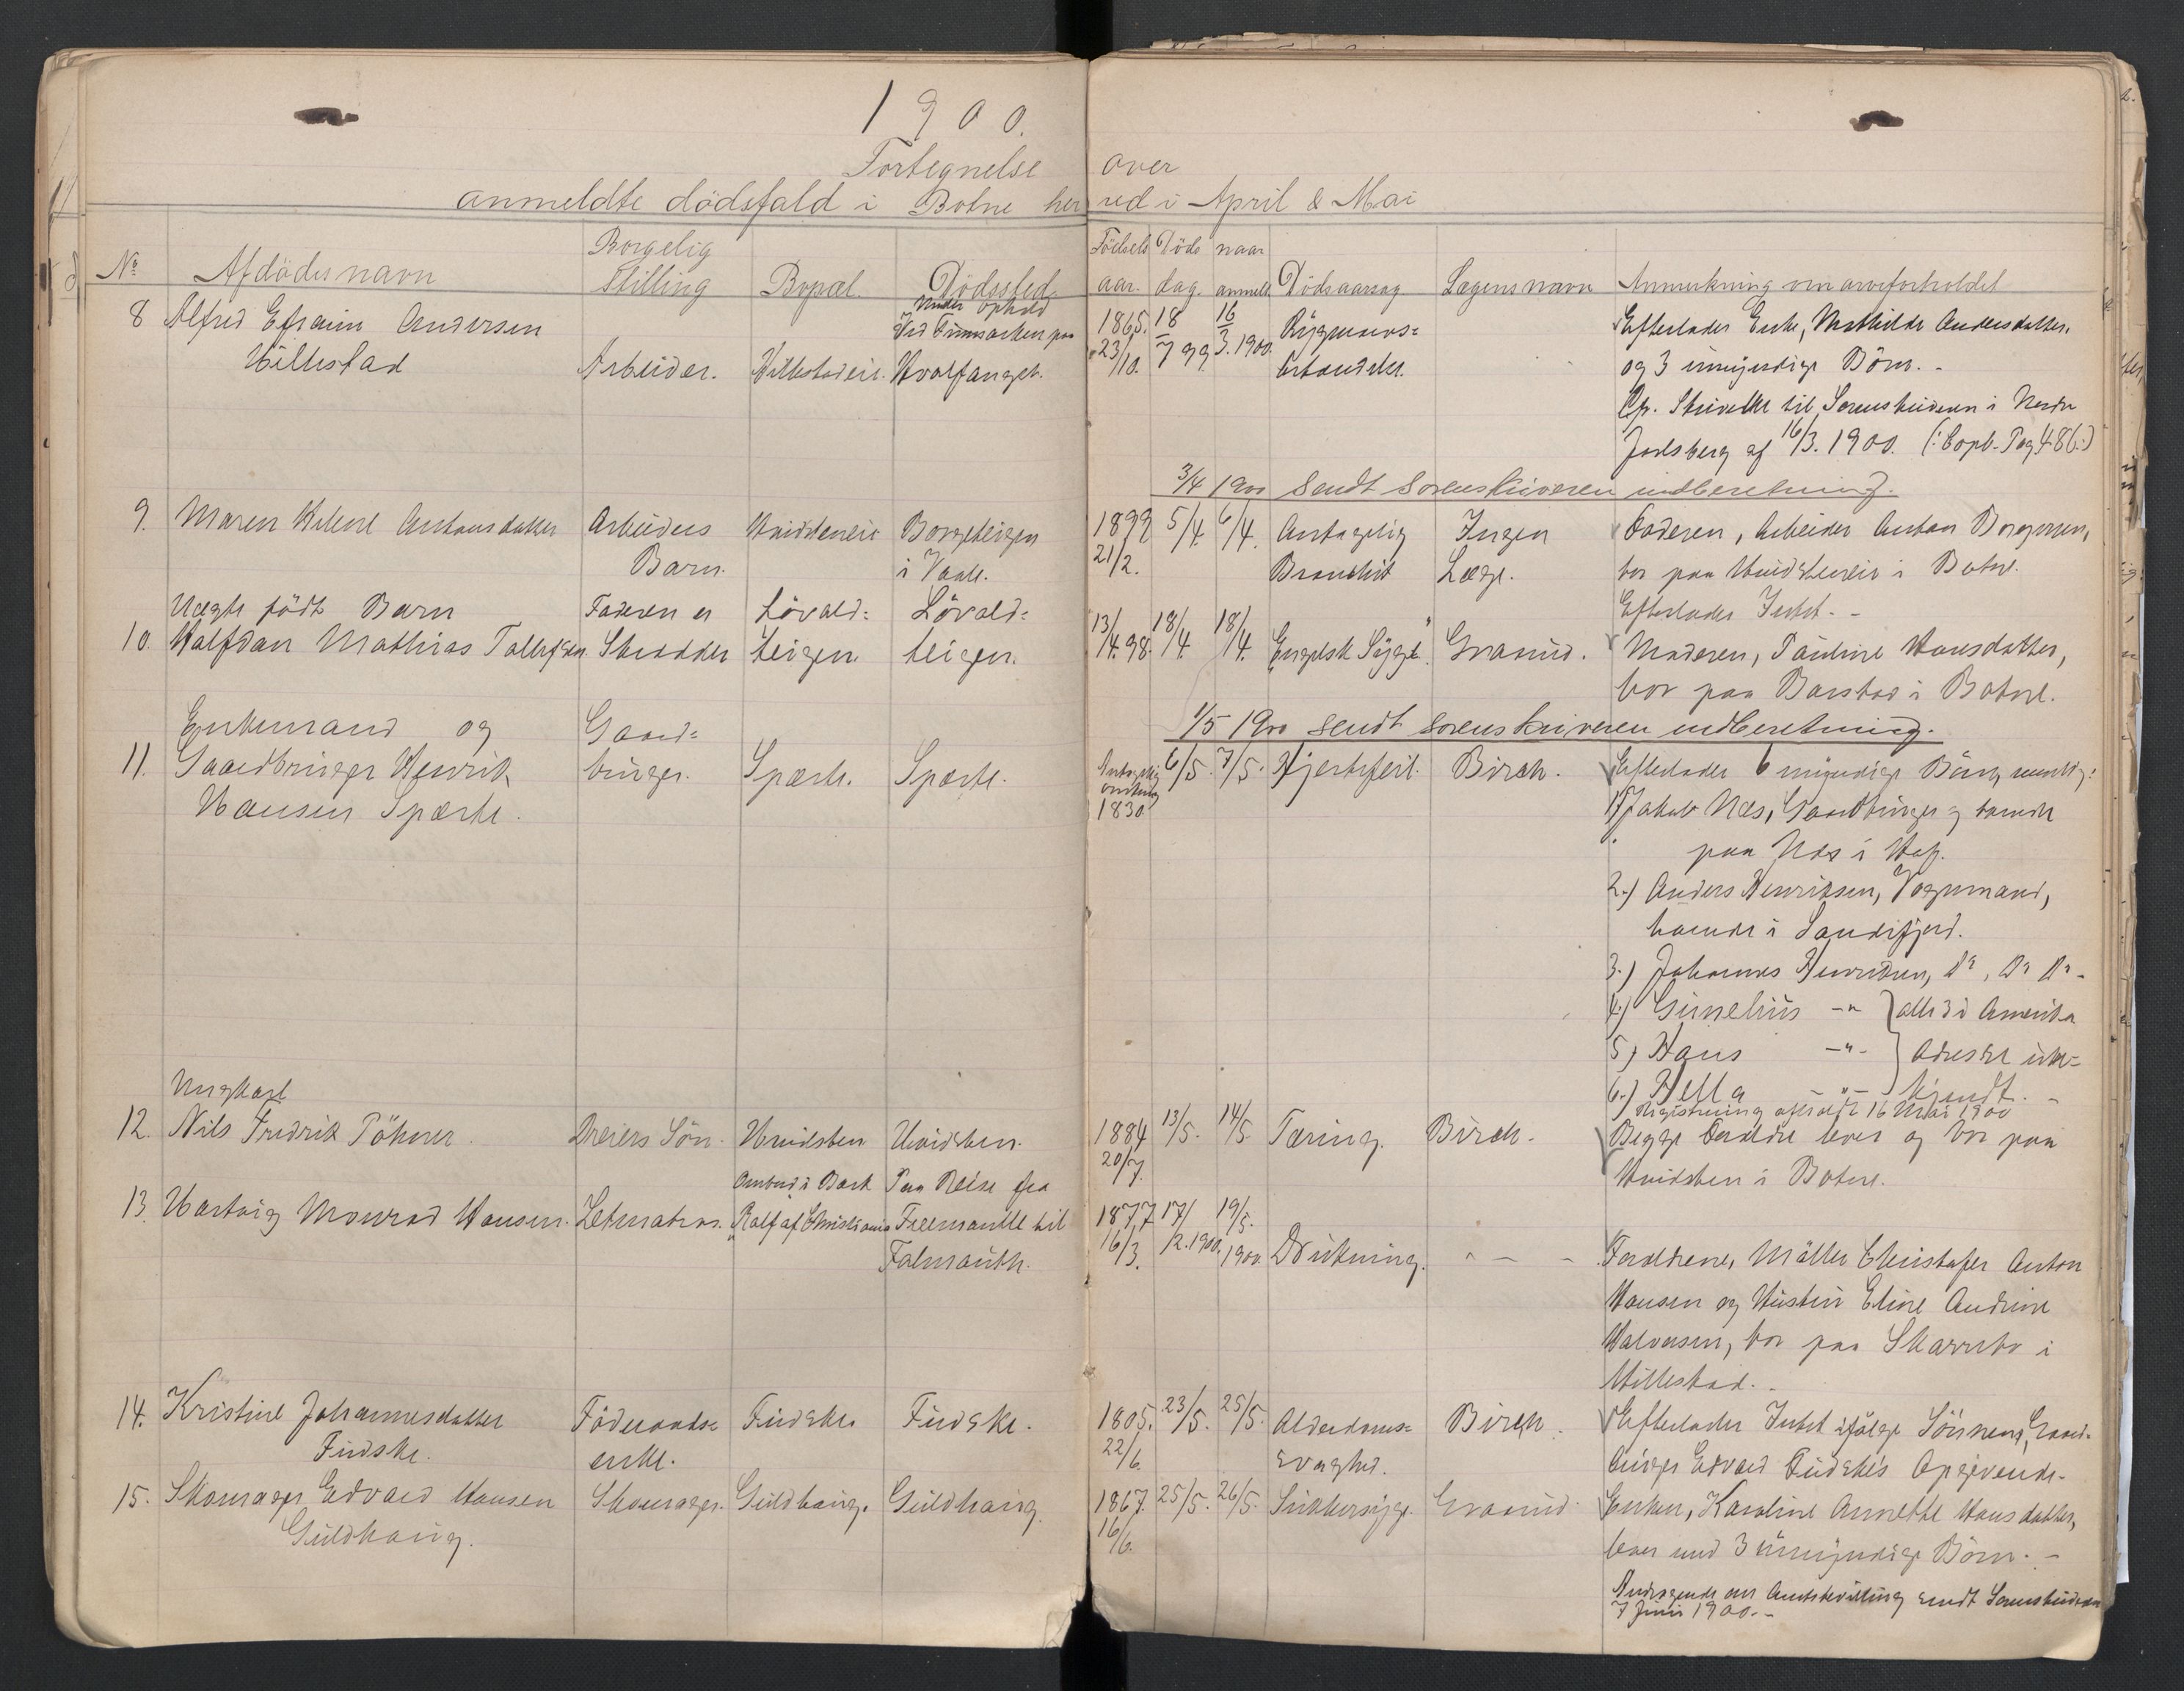 1900.
Fortegnelse over
anmeldte dödsfald i Botne herred i April & Mai
No Afdödes navn Borgelig Stilling Bopæl. Dödssted. Födsels aar. Döds dag. naar anmeldt Dödsaarsag Lægens navn Anmerkning om arveforholdet
8 Alfred Efraim Andersen
Hillestad Arbeider. Hillestadeie. Under Ophold
Ved Finmarken paa
Hvalfanget.
1865. 23/10. 18/7 99. 16/3. 1900. Rygmarvs=
betændelse.
Efterlader Enke, Mathilde Andersdatter,
og 3 umyndige Börn. -
Cfr. Skrivelse til Sorenskriveren i Nordre
Jarlsberg af 16/3. 1900. (: Copb. Pag 486 :)
3/4 1900 Sendt Sorenskriveren indberetning.
9. Maren Helene Antonsdatter Arbeiders
Barn. Hvidsteneie Borgeteigen
i Vaale.
1899 21/2. 5/4. 6/4. Antagelig
Bronchit Ingen
Læge.
Faderen, Arbeider Anton Borgersen,
bor paa Hvidsteneie i Botne.
Efterlader Intet. -
Uægte födt Barn
10. Halfdan Mathias Tallefsen. Faderen er
Skrædder Lövald=
teigen. Lövald=
teigen.
13/4. 98. 18/4. 18/4. "Engelsk Syge". Graarud.
Moderen, Pauline Hansdatter,
bor paa Barstad i Botne.
1/5 1900 Sendt Sorenskriveren indberetning.
Enkemand og
11. Gaardbruger Henrik
Hansen Sparke. Gaard=
bruger. Sparke. Sparke.
Antagelig
omkring
1830 6/5. 7/5. Hjertefeil. Birch.
Efterlader 6 myndige Börn, nemlig:
1) Jakob Næs, Gaardbruger og boende
paa Næs i Hof.
2.) Anders Henriksen, Vognmand,
boende i Sandefjord.
3.) Johannes Henriksen, Do, Do Do -
4.) Gunelius -"- } alle 3 i Amerika
5.) Hans -"- } Adresse ube=
6.) Hella -"- } kjendt. -
Registrering afholdt 16 Mai 1900
Ungkarl
12. Nils Fredrik Töhner. Dreiers Sön. Hvidsten Hvidsten.
1884 20/7. 13/5. 14/5. Tæring. Birch.
Begge Forældre lever og bor paa
Hvidsten i Botne.
13. Hartvig Monrad Hansen. Letmatros. Ombord i Bark
"Ralf" af Christiania Paa Reise fra
Freemantle til
Falmouth.
1877 16/3. 17/2. 1900. 19/5. 1900. Drukning. " — -
Forældrene, Möller Christofer Anton
Hansen og Hustru Eline Andrine
Halvorsen, bor paa Skarrebo i
Hillestad. -
14. Kristine Johannesdatter
Fudske. Föderaads=
enke. Fudske. Fudske.
1805. 22/6. 23/5. 25/5. Alderdoms=
svaghed. Birch.
Efterlader Intet ifölge Sönnens, Gaard=
bruger Edvard Fudske's Opgivende. -
15. Skomager Edvard Hansen
Guldhaug. Skomager. Guldhaug. Guldhaug.
1867. 16/6. 25/5. 26/5. Sukkersyge. Graarud.
Enken, Karoline Annette Hansdatter,
lever med 3 umyndige Börn. -
Andragende om Amtsbevilling sendt Sorenskriveren
7 Juni 1900. -